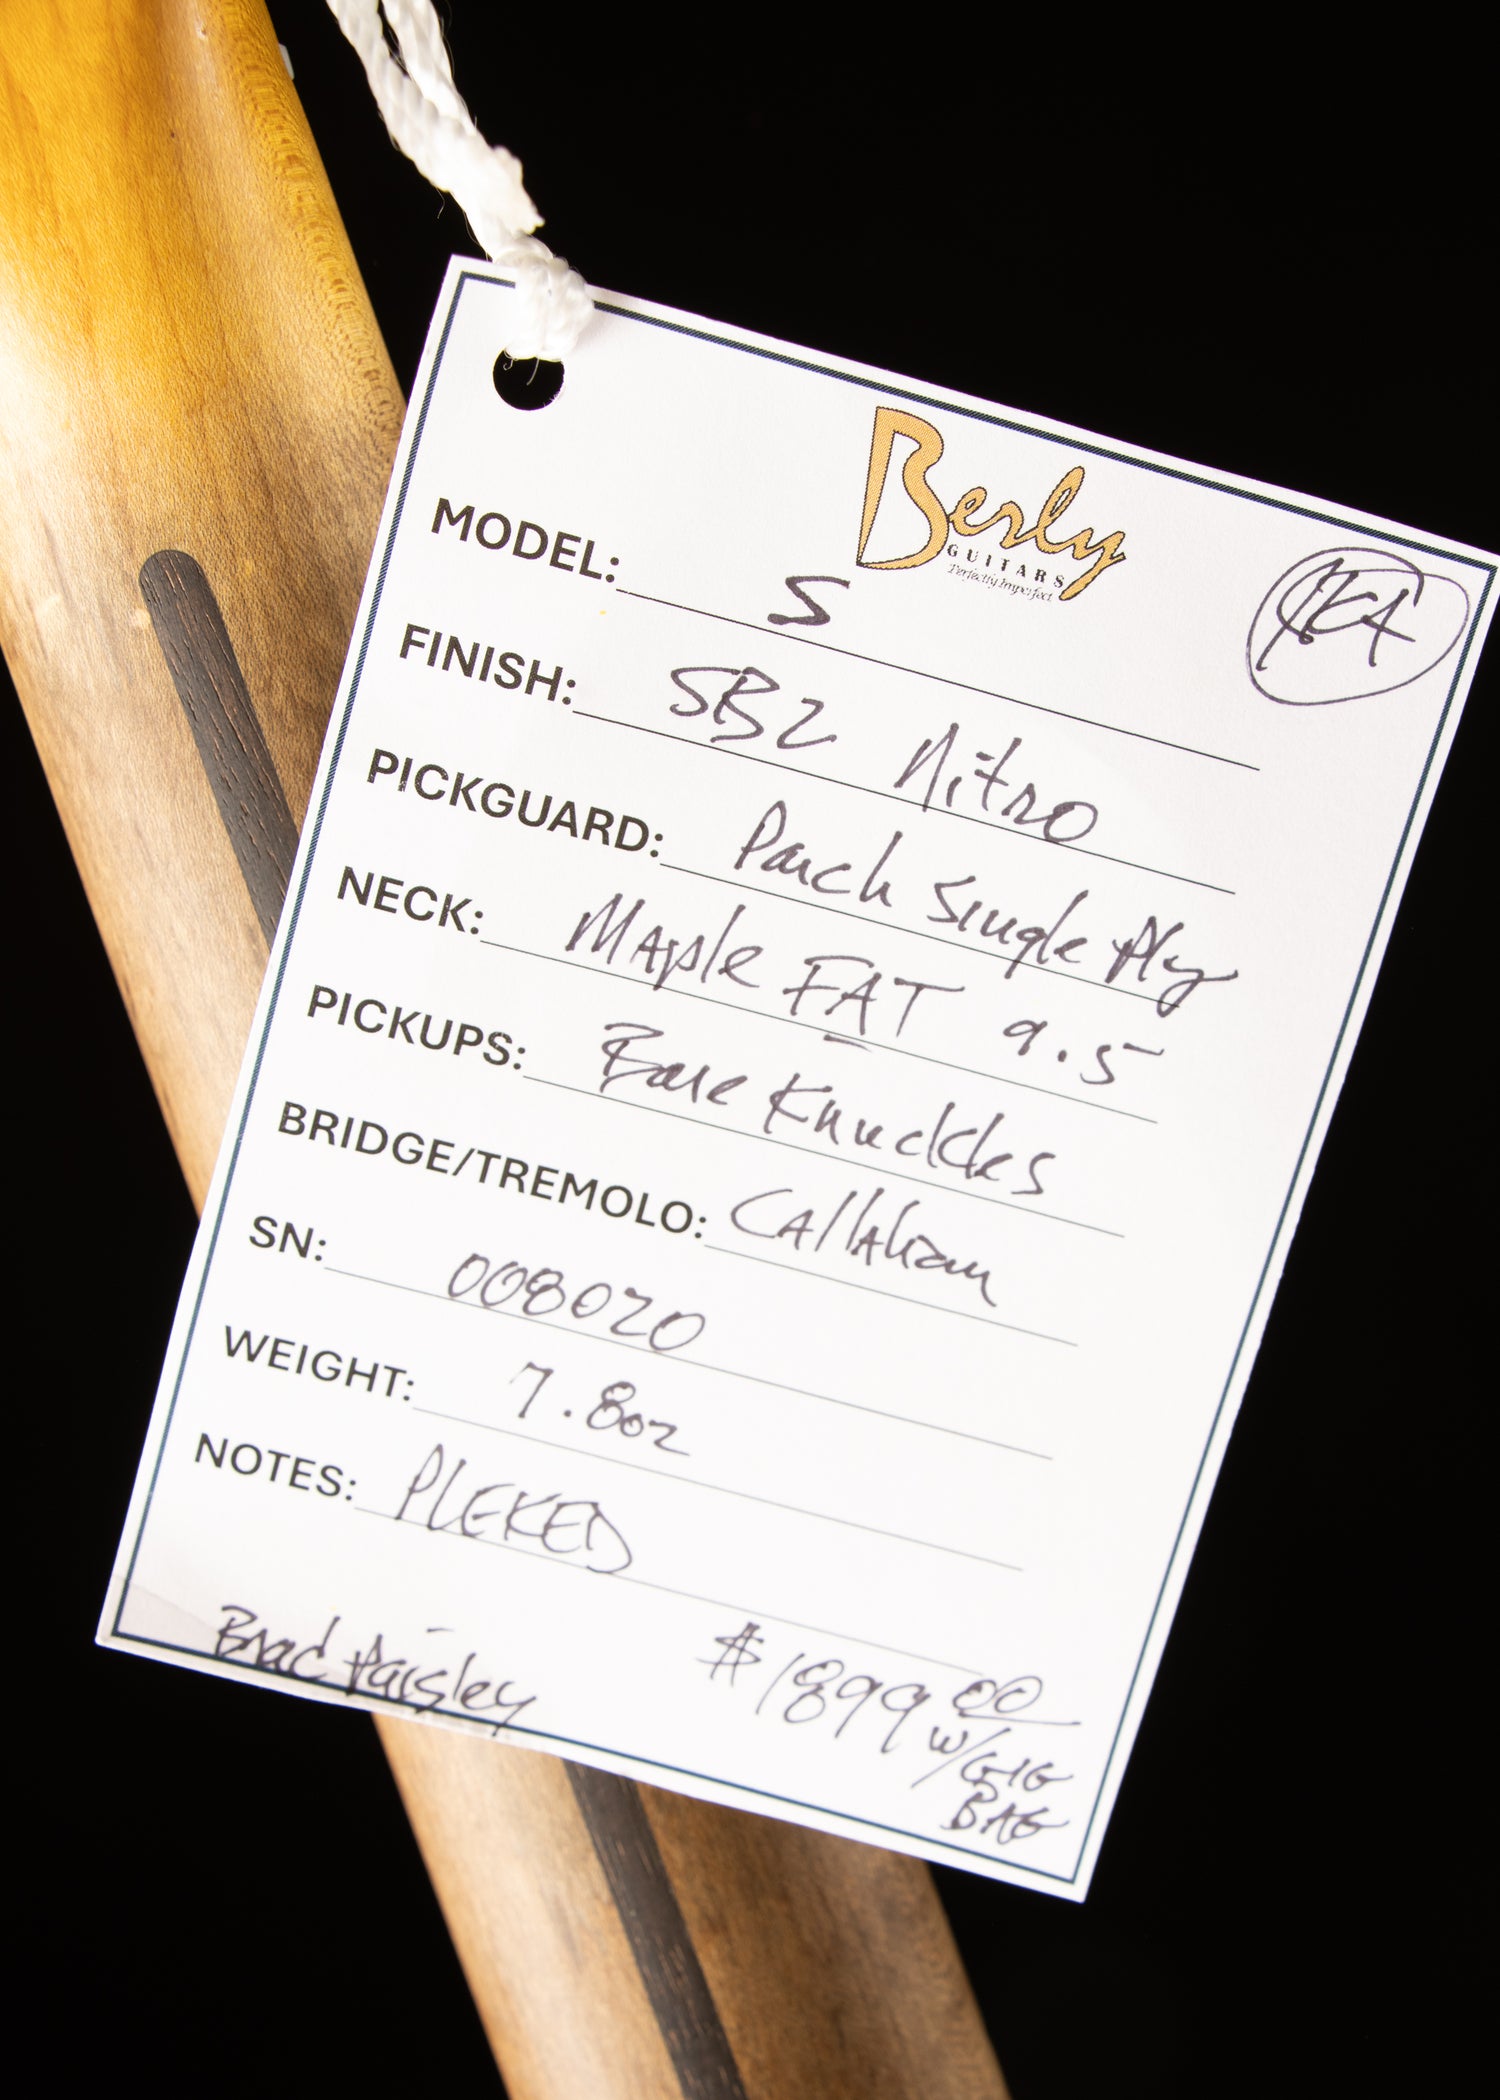 Berly
GUITARS
Perfectly Imperfect
MODEL: S
FINISH: SB2 Nitro
PICKGUARD: Parch Single Ply
NECK: Maple FAT 9.5
PICKUPS: Bare Knuckles
BRIDGE/TREMOLO: Callaham
SN: 008020
WEIGHT: 7.8oz
NOTES: PLEKED
Brad Paisley
$1899 00
w/GIG
BAG